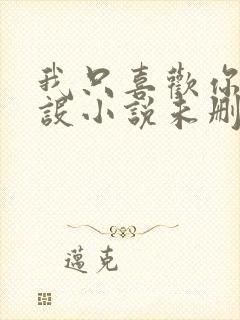 我只喜歡你
設小說未刪
邁克